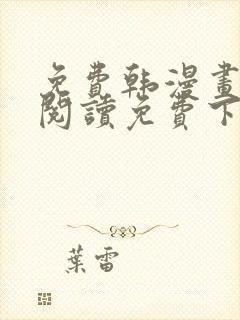 免费韩漫畫
閱讀免費下
葉雷